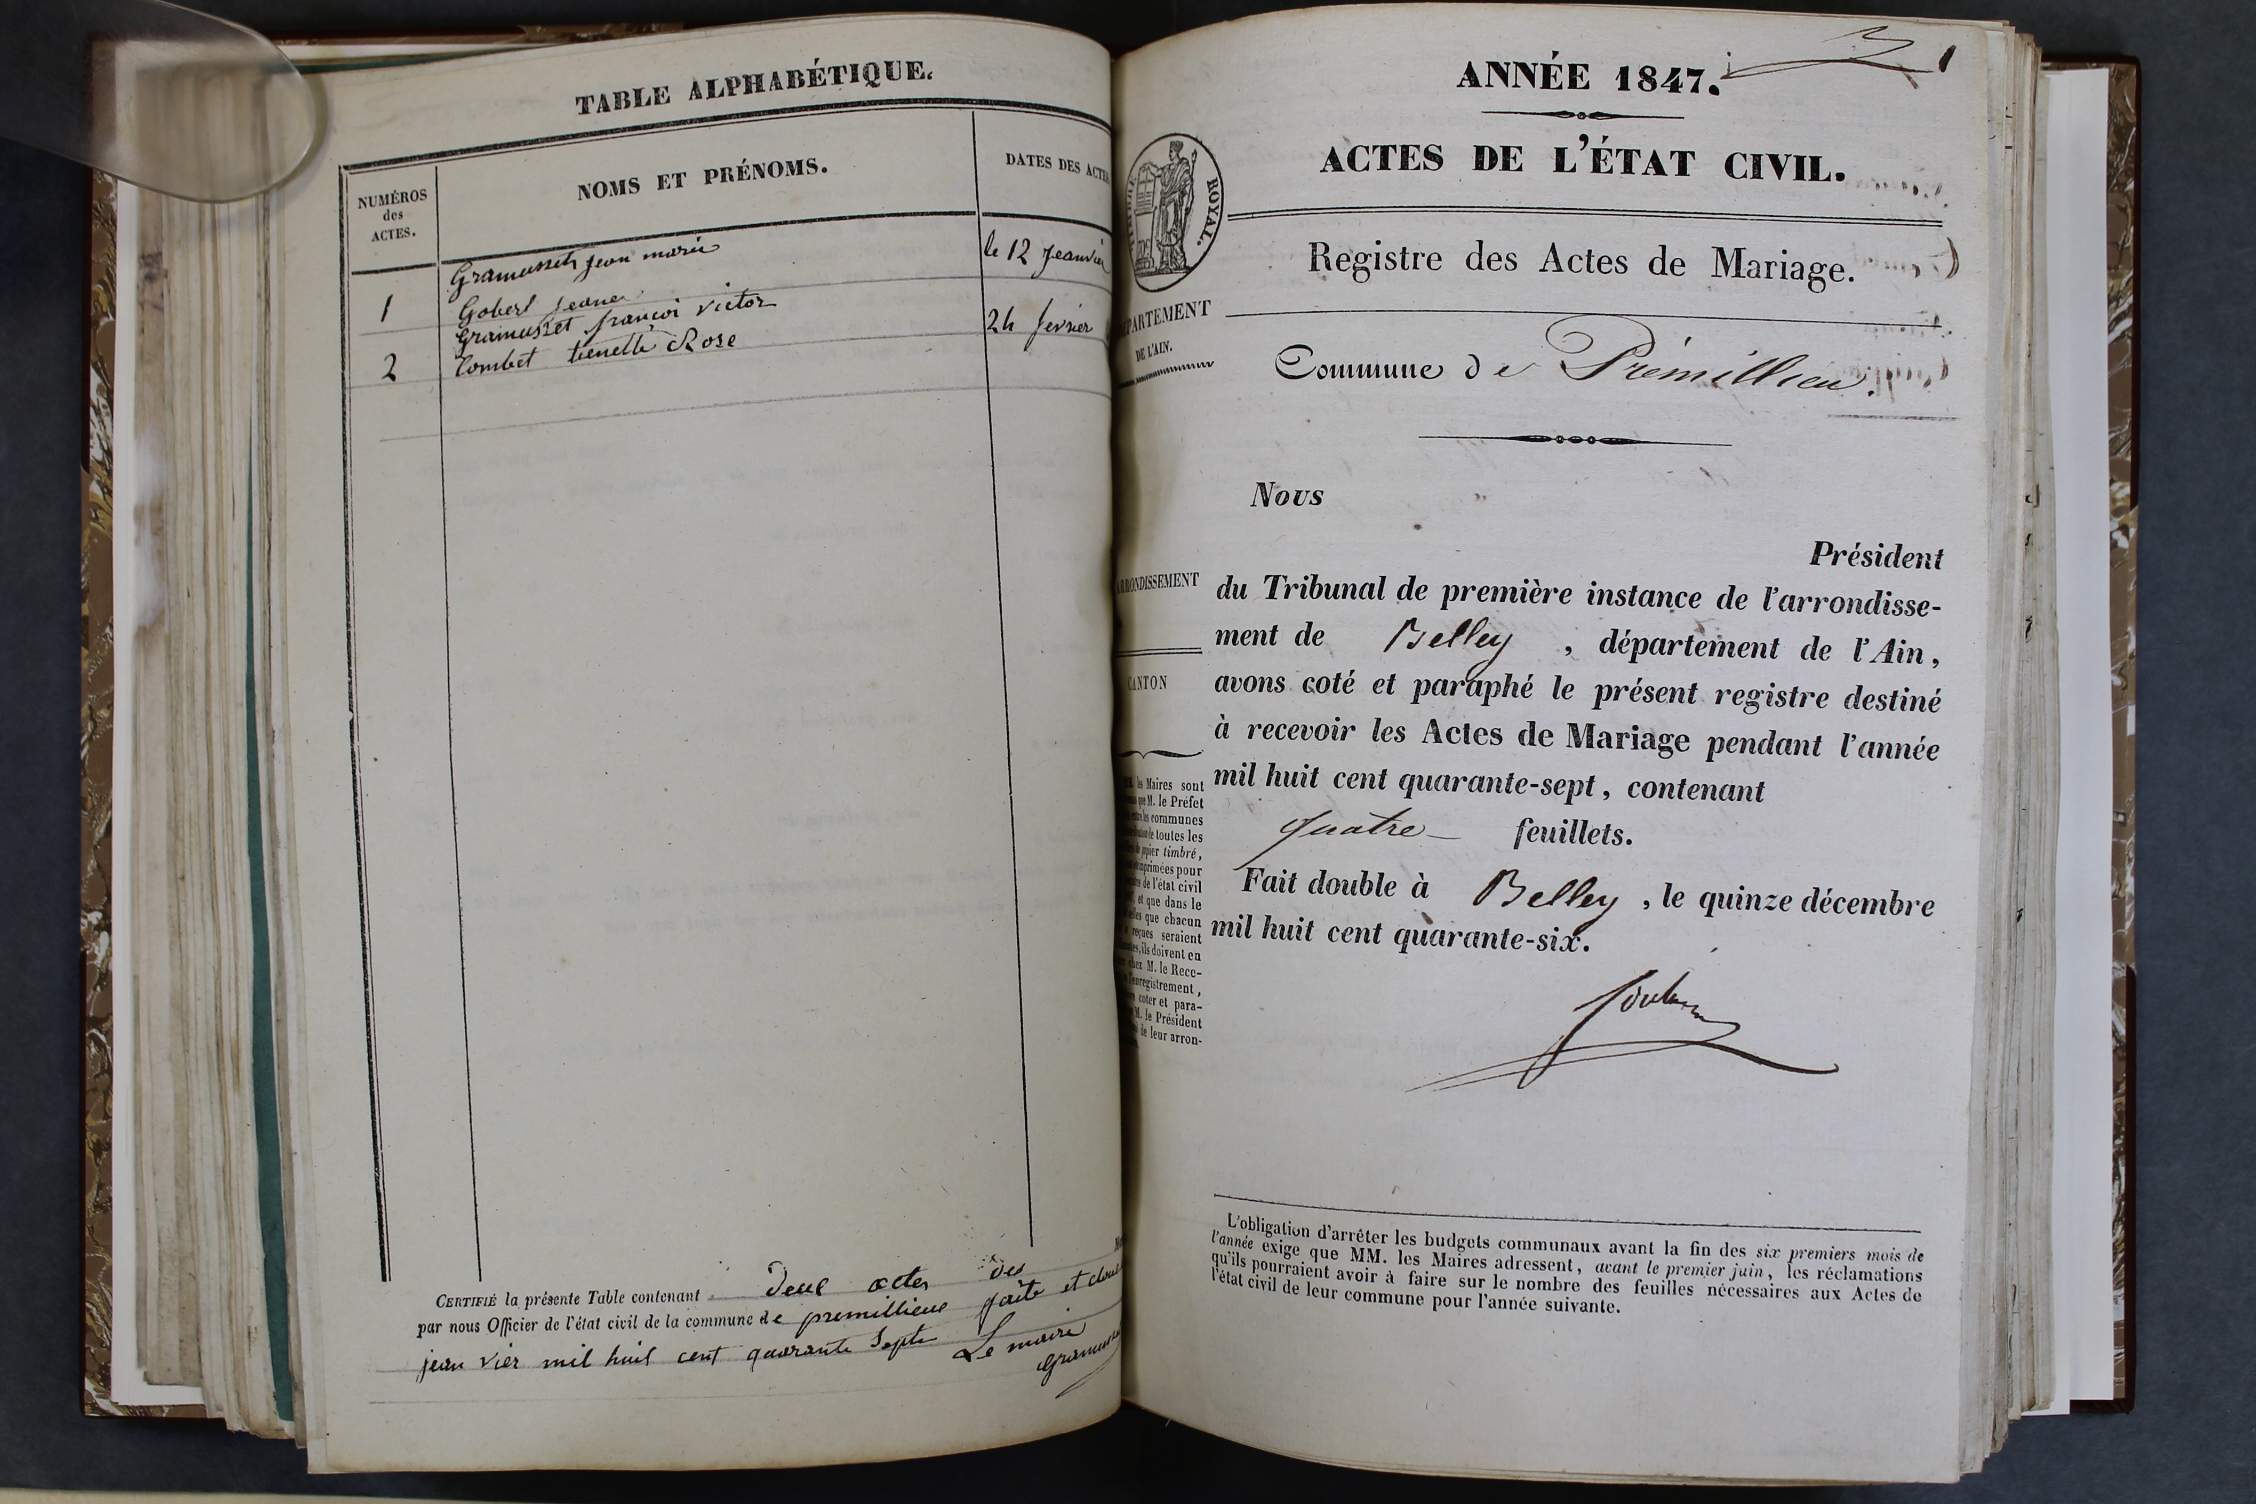 TABLE ALPHABÉTIQUE.
NUMÉROS
des
ACTES.
NOMS ET PRÉNOMS.
DATES DES ACTES
Gramusset jean marie
le 12 Jeanvier
1
Gobert Jeane
Gramusset françoi victor
24 fevrier
2
Combet tienette Rose
CERTIFIÉ la présente Table contenant deux actes des
par nous Officier de l'état civil de la commune de premillieux faite et
jean vier mil huit cent quarante Septe Le maire
ANNÉE 1847.
1
ACTES DE L'ÉTAT CIVIL.
TIMBRE ROYAL.
Registre des Actes de Mariage.
DÉPARTEMENT
DE L'AIN.
Commune de Prémillieu.
Nous
Président
ARRONDISSEMENT
du Tribunal de première instance de l'arrondisse-
ment de Belley, département de l'Ain,
CANTON
avons coté et paraphé le présent registre destiné
à recevoir les Actes de Mariage pendant l'année
mil huit cent quarante-sept, contenant
quatre feuillets.
Fait double à Belley, le quinze décembre
mil huit cent quarante-six.
les Maires sont
que M. le Préfet
les communes
de toutes les
papier timbré,
imprimées pour
de l'état civil
et que dans le
que chacun
reçues seraient
ils doivent en
chez M. le Rece-
l'enregistrement,
coter et para-
M. le Président
de leur arron-
L'obligation d'arrêter les budgets communaux avant la fin des six premiers mois de
l'année exige que MM. les Maires adressent, avant le premier juin, les réclamations
qu'ils pourraient avoir à faire sur le nombre des feuilles nécessaires aux Actes de
l'état civil de leur commune pour l'année suivante.